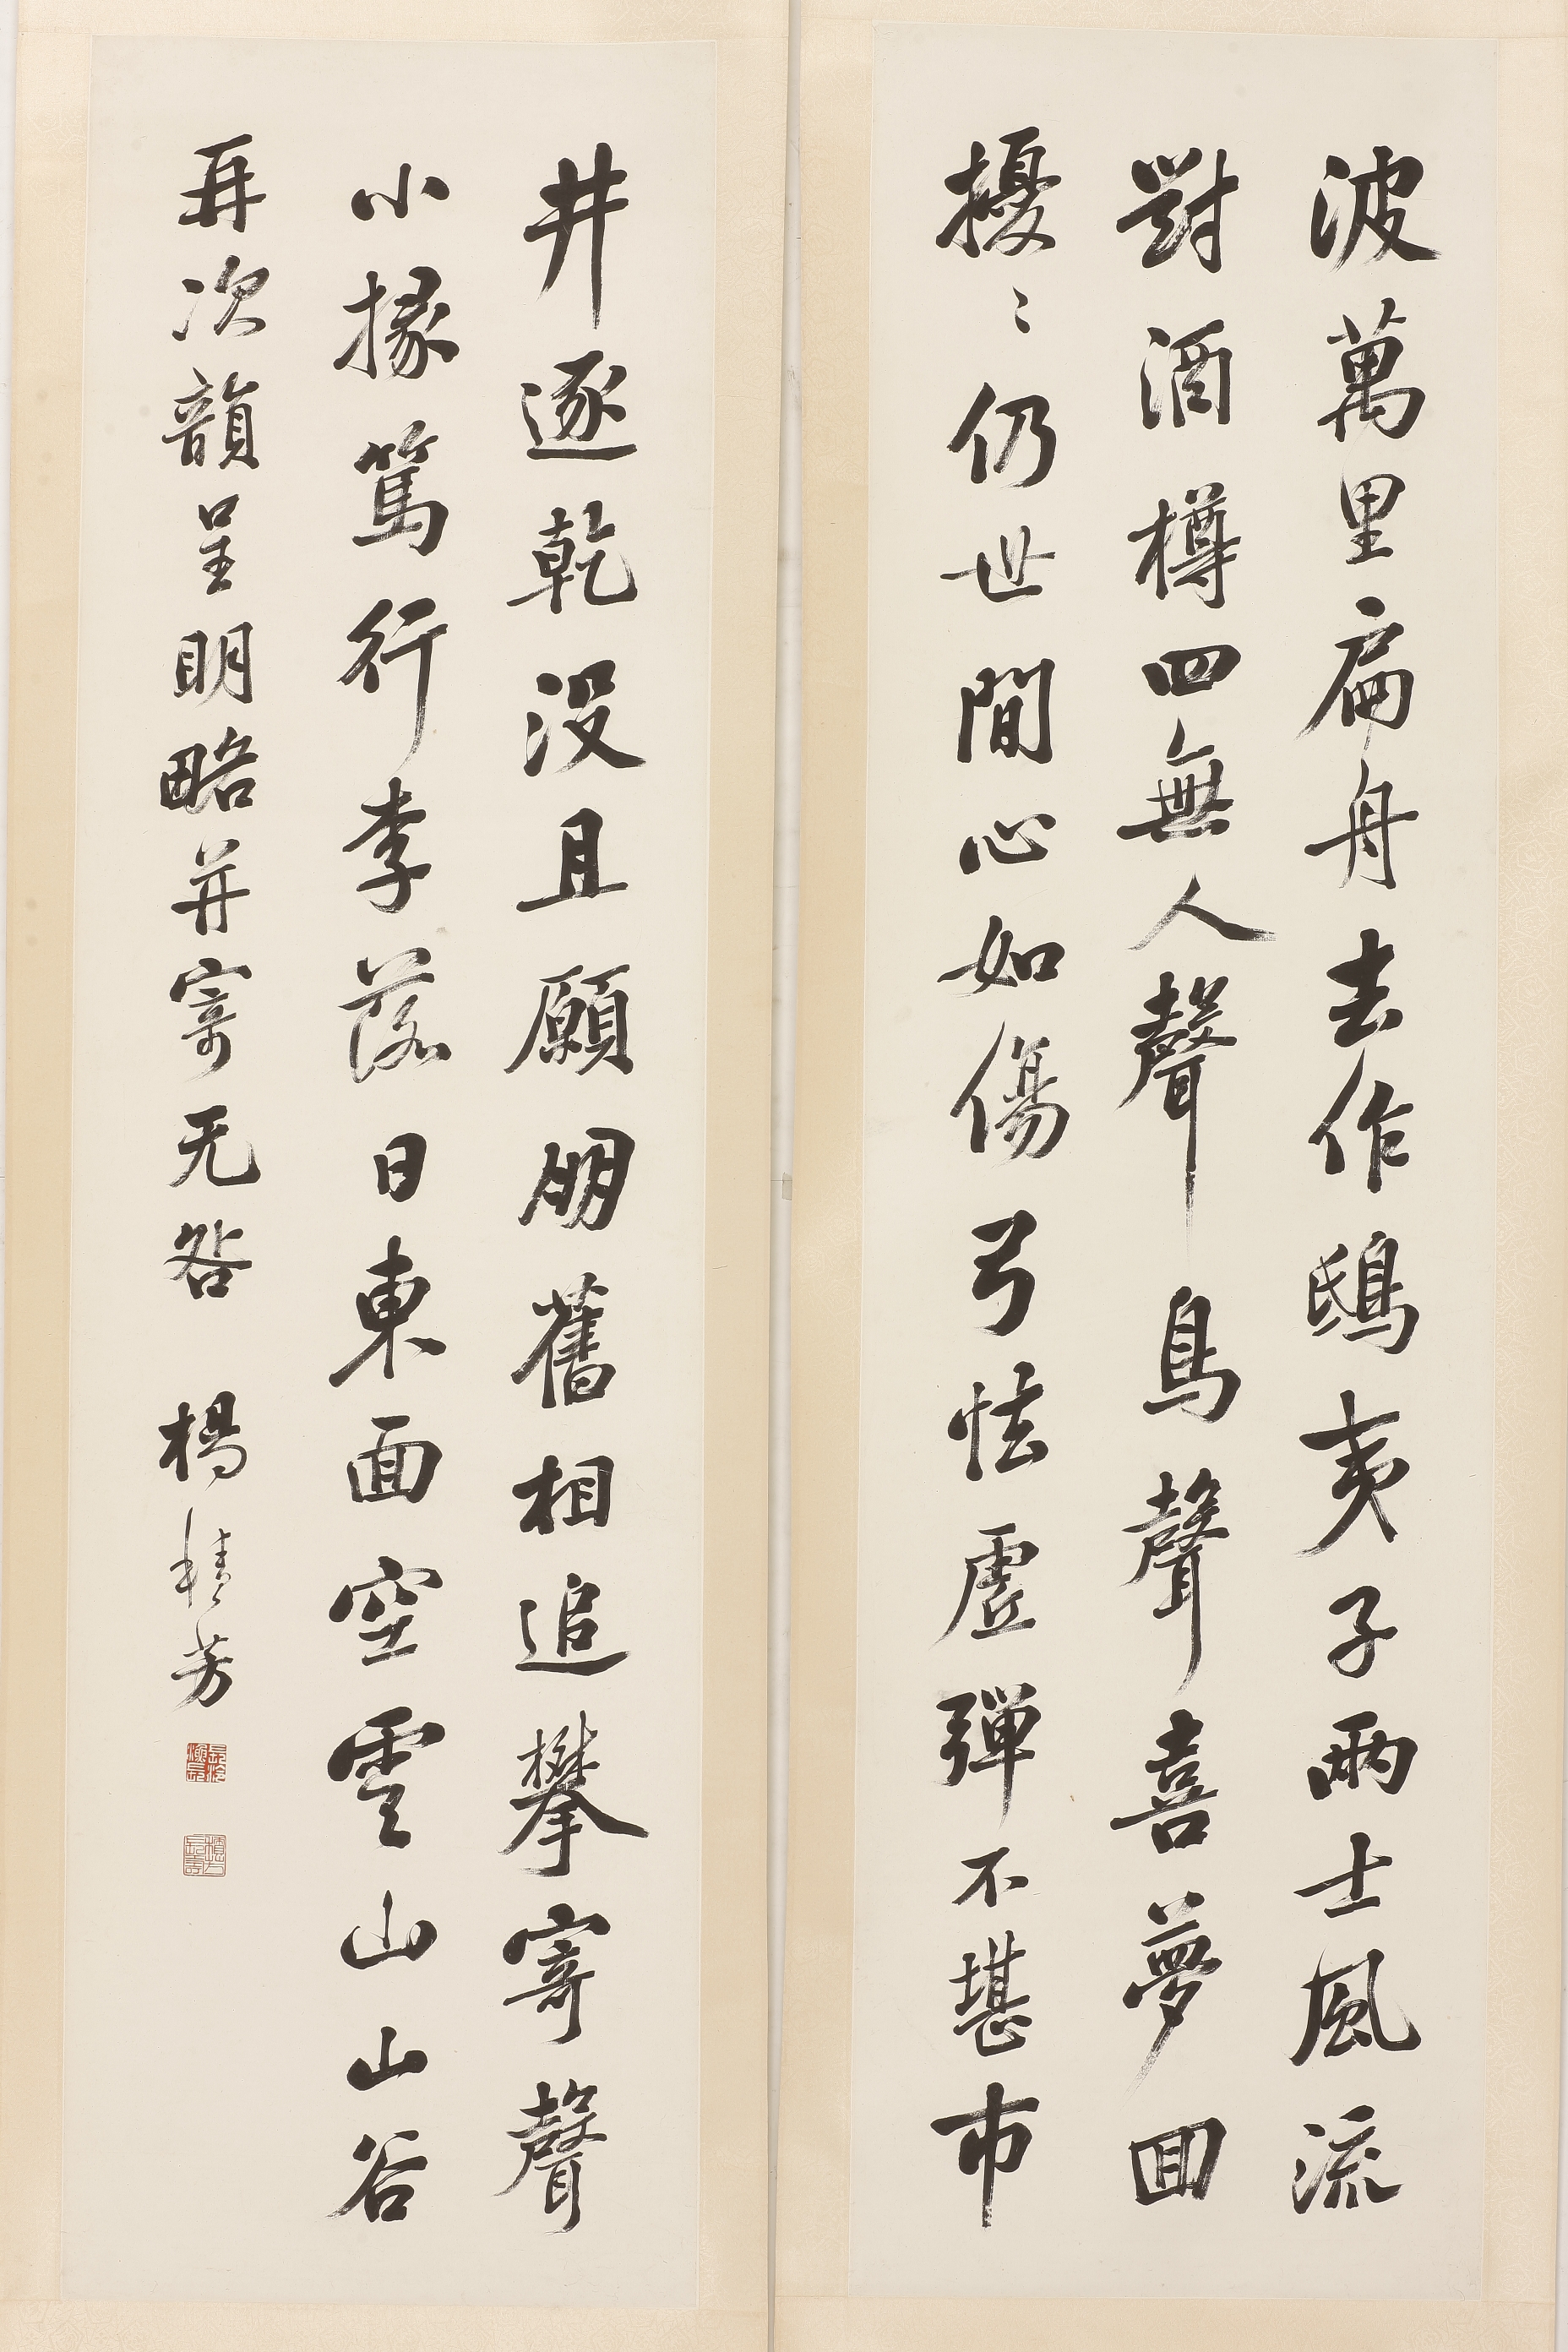 波萬里扁舟去作鴟夷子兩士風流
對酒樽四無人聲鳥聲喜夢回
擾〻仍世間心如傷弓怯虛彈不堪市
井逐乾没且願朋舊相追攀寄聲
小掾篤行李落日東面空雲山山谷
再次韻呈明略并寄无咎 楊積芳